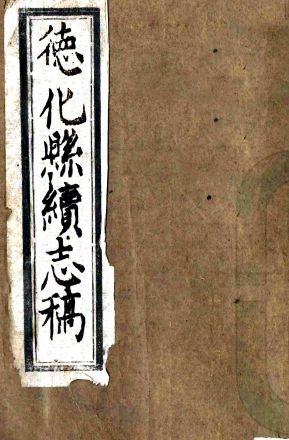 德化縣續志稿